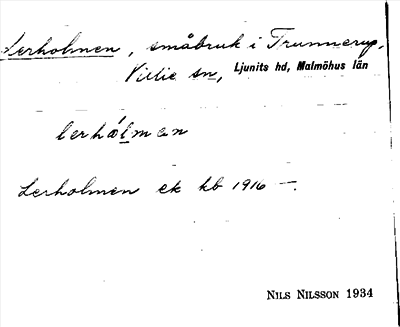 Lerholmen, småbruk i Trunnerup,
Villie sn, Ljunits hd, Malmöhus län
lerhálmen
Lerholmen ek kb 1916 —.
NILS NILSSON 1934